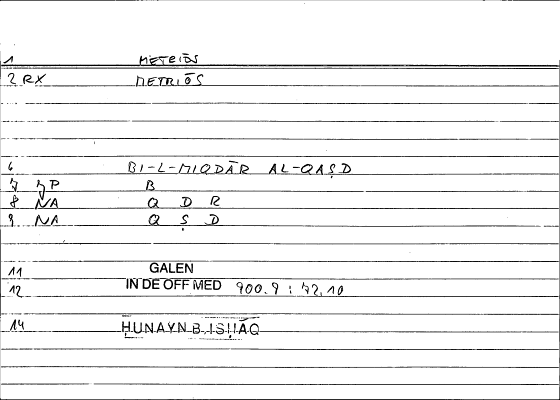 1 METRIŌS
2 RX METRIŌS
6 BI-L-MIQDĀR AL-QAṢD
7 ȜP B
8 NA Q D R
9 NA Q Ṣ D
11 GALEN
12 IN DE OFF MED 900.9 : 72,10
14 ḤUNAYN B. ISḤĀQ